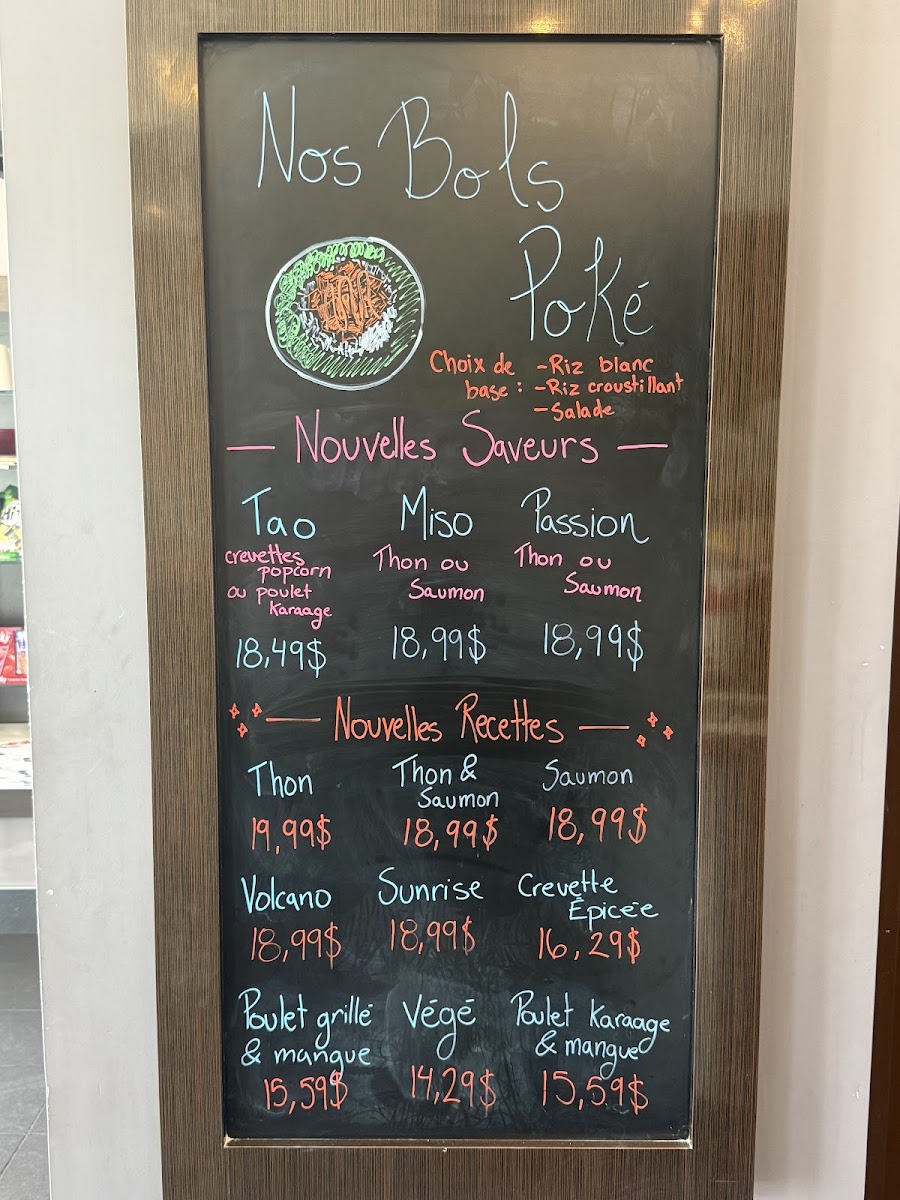 Nos Bols
Poké
Choix de - Riz blanc
base : - Riz croustillant
- Salade
— Nouvelles Saveurs —
Tao
crevettes
popcorn
ou poulet
Karaage
18,49$
Miso
Thon ou
Saumon
18,99$
Passion
Thon ou
Saumon
18,99$
— Nouvelles Recettes —
Thon
19,99$
Thon &
Saumon
18,99$
Saumon
18,99$
Volcano
18,99$
Sunrise
18,99$
Crevette
Épicée
16,29$
Poulet grillé
& mangue
15,59$
Végé
14,29$
Poulet Karaage
& mangue
15,59$